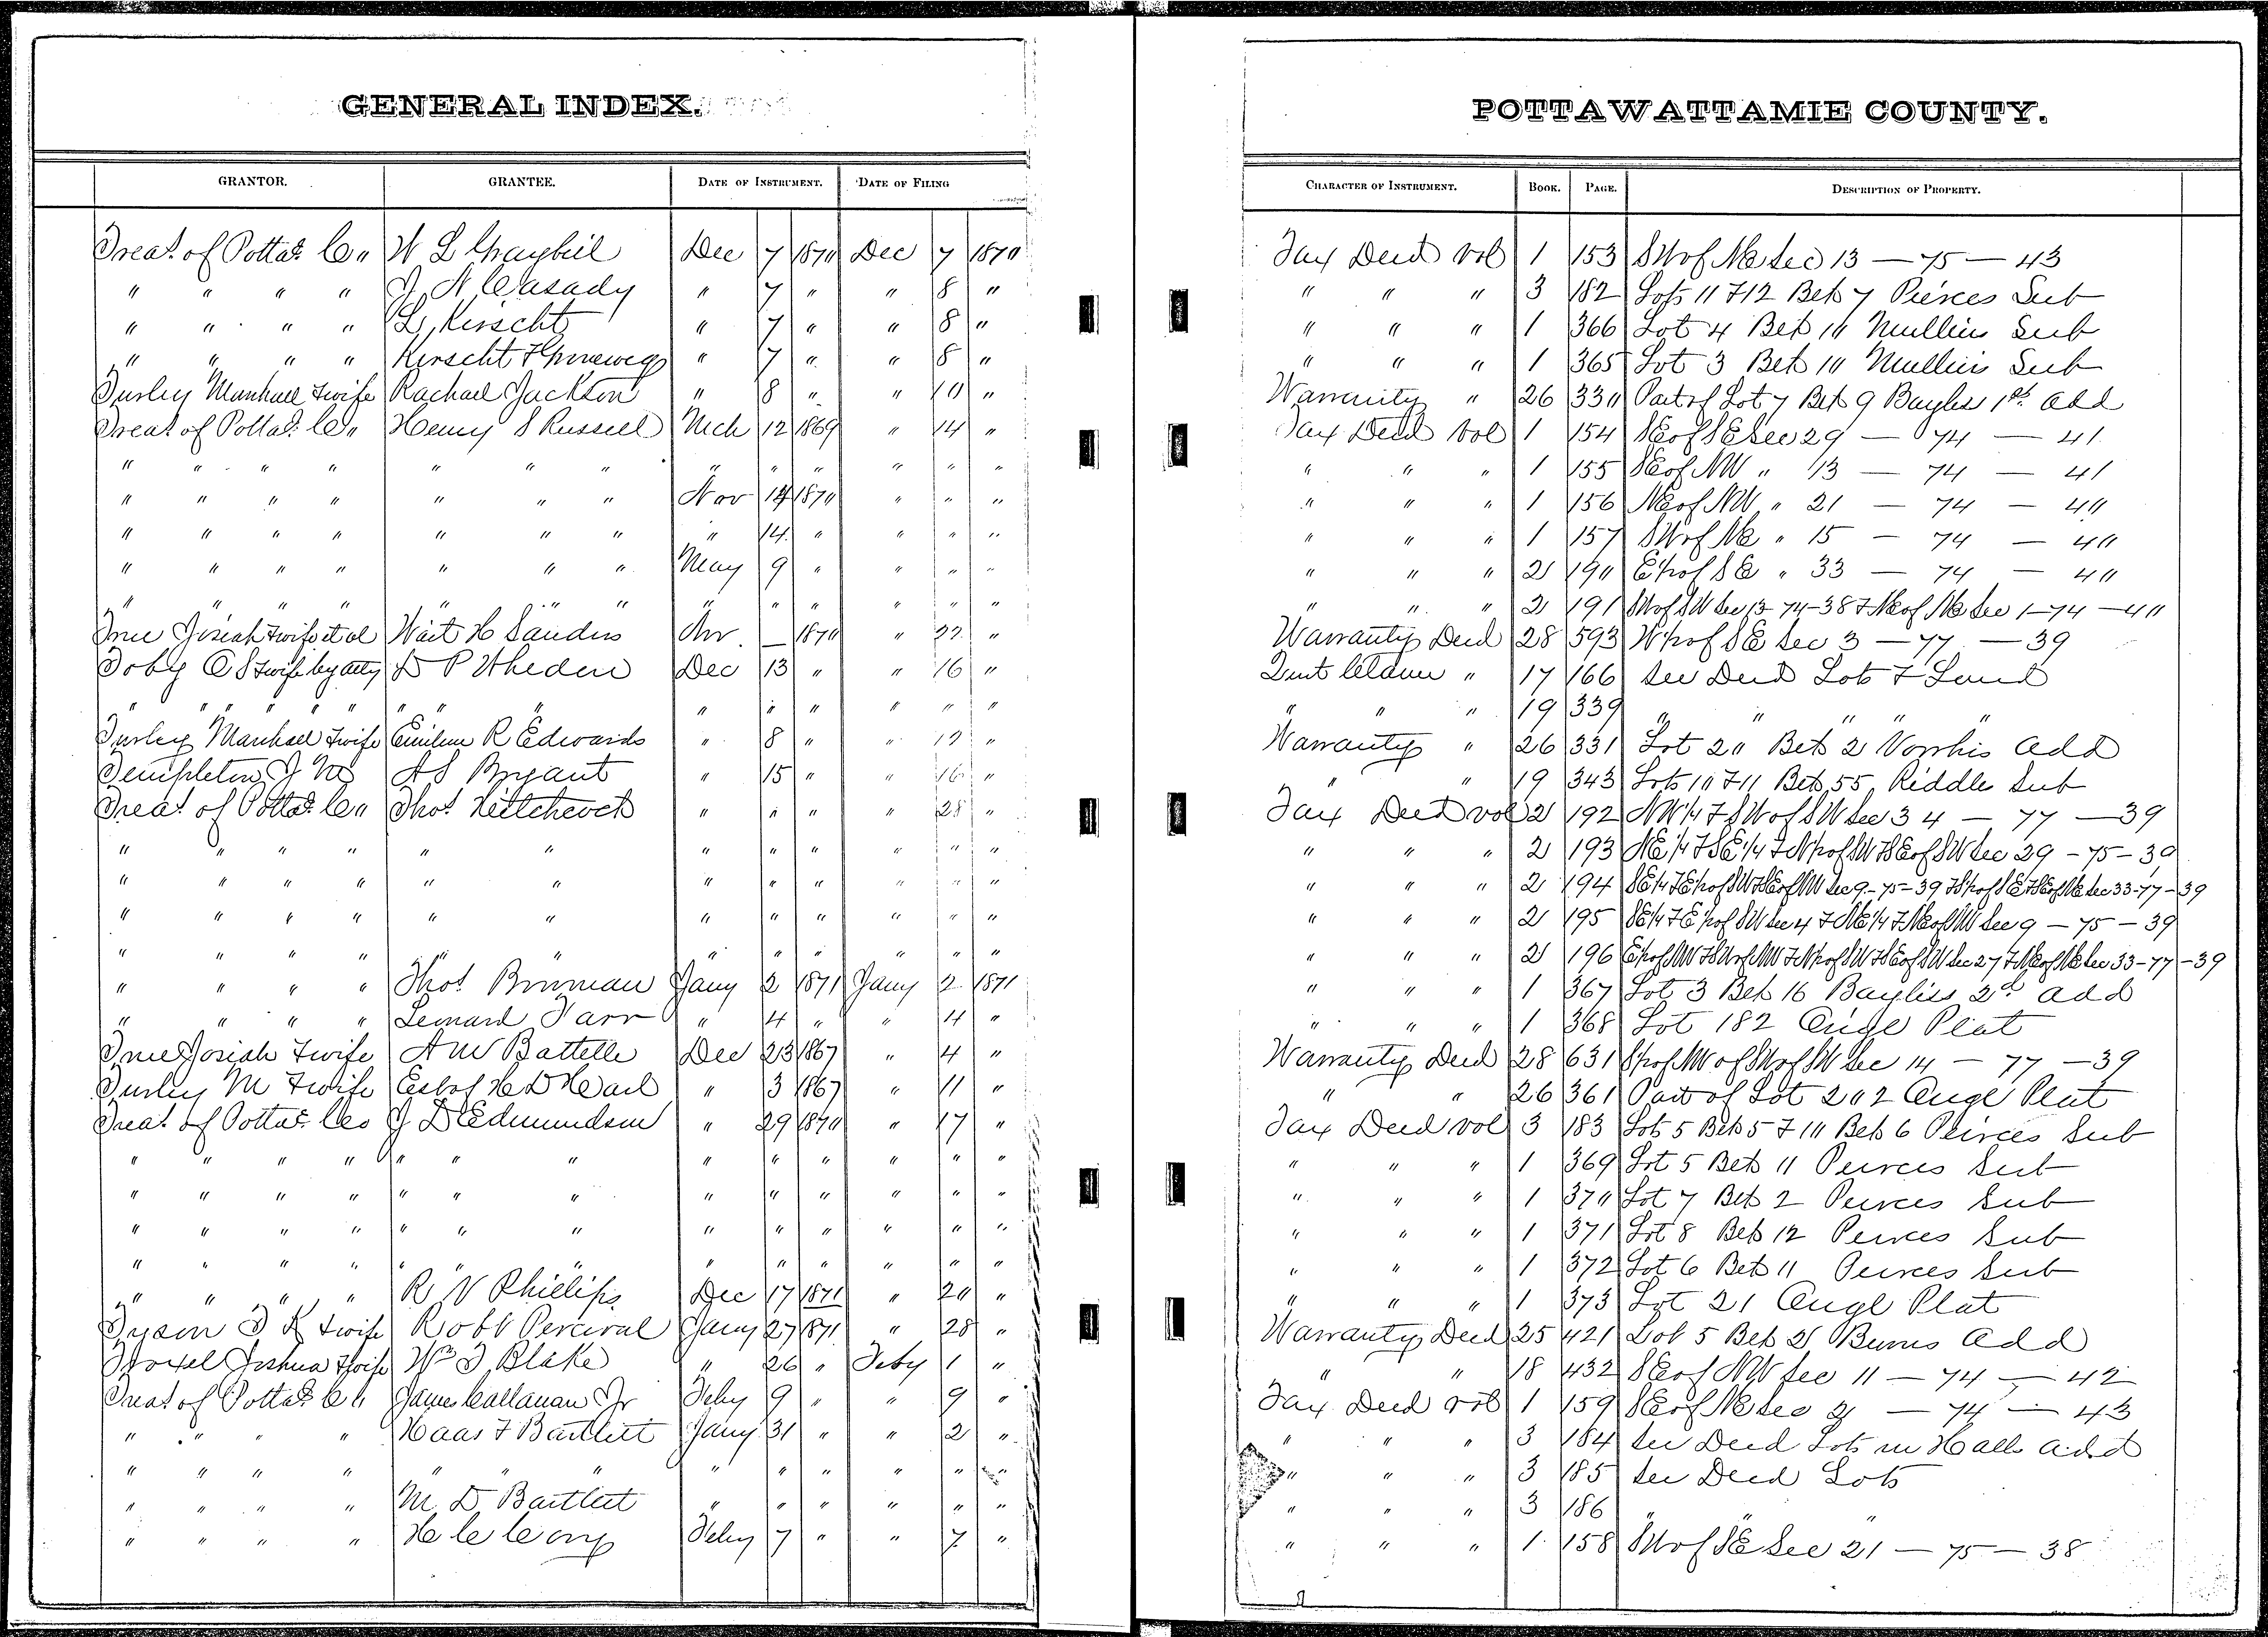 GENERAL INDEX.
POTTAWATTAMIE COUNTY.
GRANTOR. GRANTEE. DATE OF INSTRUMENT. DATE OF FILING CHARACTER OF INSTRUMENT. BOOK. PAGE. DESCRIPTION OF PROPERTY.
Treas. of Pottat. Co. W L Graybill Dec 7 1870 Dec 7 1870 Tax Deed Vol 1 153 SW of NE Sec 13 — 75 — 43
" " " " J N Casady " 7 " " 8 " " " " 3 182 Lots 11 & 12 Blk 7 Pierces Sub
" " " " L Kirscht " 7 " " 8 " " " " 1 366 Lot 4 Blk 10 Mullins Sub
" " " " Kirscht & " 7 " " 8 " " " " 1 365 Lot 3 Blk 10 Mullins Sub
Turley Marshall & wife Rachael Jackson " 8 " " 10 " Warranty " 26 330 Part of Lot 7 Blk 9 Bayliss 1st Add
Treas. of Pottat. Co. Henry S Russell Mch 12 1869 " 14 " Tax Deed Vol 1 154 SE of SE Sec 29 — 74 — 41
" " " " " " " " " " " " " " " " 1 155 SE of NW " 13 — 74 — 41
" " " " " " " Nov 14 1870 " " " " " " 1 156 NE of NW " 21 — 74 — 40
" " " " " " " " 14 " " " " " " " 1 157 SW of NE " 15 — 74 — 40
" " " " " " " May 9 " " " " " " " 2 190 E hf of SE " 33 — 74 — 40
" " " " " " " " " " " " " " " " 2 191 SW of SW Sec 13-74-38 & NE of NE Sec 1-74-40
True Josiah & wife et al Wait H Sanders Nov — 1870 " 22 " Warranty Deed 28 593 W hf of SE Sec 3 — 77 — 39
Toby C S & wife by atty D P Wheden Dec 13 " " 16 " Quit Claim " 17 166 See Deed Lots & Land
" " " " " " " " " " " " " " " " " 19 339 " " " " "
Turley Marshall & wife Emiline R Edwards " 8 " " 19 " Warranty " 26 331 Lot 20 Blk 2 Vorrhis Add
Templeton J W A S Bryant " 15 " " 16 " " " 19 343 Lots 10 & 11 Blk 55 Riddles Sub
Treas. of Pottat. Co. Thos Hitchcock " " " " 28 " Tax Deed vol 2 192 NW 1/4 & SW of SW Sec 34 — 77 — 39
" " " " " " " " " " " " " " " 2 193 NE 1/4 & SE 1/4 & N hf of SW & SE of SW Sec 29 — 75 — 39
" " " " " " " " " " " " " " " 2 194 SE 1/4 & E hf of SW & SE of NW Sec 9-75-39 & S hf of SE & SE of NE Sec 33-77-39
" " " " " " " " " " " " " " " 2 195 SE 1/4 & E hf of SW Sec 4 & NE 1/4 & NE of NW Sec 9 — 75 — 39
" " " " " " " " " " " " " " " 2 196 E hf of NW & SW of NW & N hf of SW & SE of SW Sec 27 & NE of NE Sec 33-77-39
" " " " Thos Bowman Jany 2 1871 Jany 2 1871 " " " 1 367 Lot 3 Blk 16 Bayliss 2d Add
" " " " Leonard Farr " 4 " " 4 " " " " 1 368 Lot 182 Origl Plat
True Josiah & wife A W Battelle Dec 23 1867 " 4 " Warranty Deed 28 631 S hf of NW of SW of SW Sec 14 — 77 — 39
Turley M & wife H D " 3 1867 " 11 " " " 26 361 Part of Lot 202 Origl Plat
Treas. of Pottat. Co J D Edmundson " 29 1870 " 17 " Tax Deed vol 3 183 Lots 5 Blk 5 & 10 Blk 6 Peirces Sub
" " " " " " " " " " " " " " " " 1 369 Lot 5 Blk 11 Peirces Sub
" " " " " " " " " " " " " " " " 1 370 Lot 7 Blk 2 Peirces Sub
" " " " " " " " " " " " " " " " 1 371 Lot 8 Blk 12 Peirces Sub
" " " " " " " " " " " " " " " " 1 372 Lot 6 Blk 11 Peirces Sub
" " " " R N Phillips Dec 17 1871 " 20 " " " " 1 373 Lot 21 Origl Plat
Tyson T K & wife Robt Percival Jany 27 1871 " 28 " Warranty Deed 25 421 Lot 5 Blk 21 Burns Add
Troxel Joshua & wife Wm T Blake " 26 " Feby 1 " " " 18 432 SE of NW Sec 11 — 74 — 42
Treas of Pottat. Co. James Callanan Jr Feby 9 " " 9 " Tax Deed vol 1 159 SE of NE Sec 2 — 74 — 43
" " " " Haas & Bartlett Jany 31 " " 2 " " " " 3 184 See Deed Lots in Halls Add
" " " " " " " " " " " " " " " " 3 185 See Deed Lots
" " " " M D Bartlett " " " " " " " " " 3 186 " "
" " " " Feby 7 " " 7 " " " " 1 158 SW of SE Sec 21 — 75 — 38